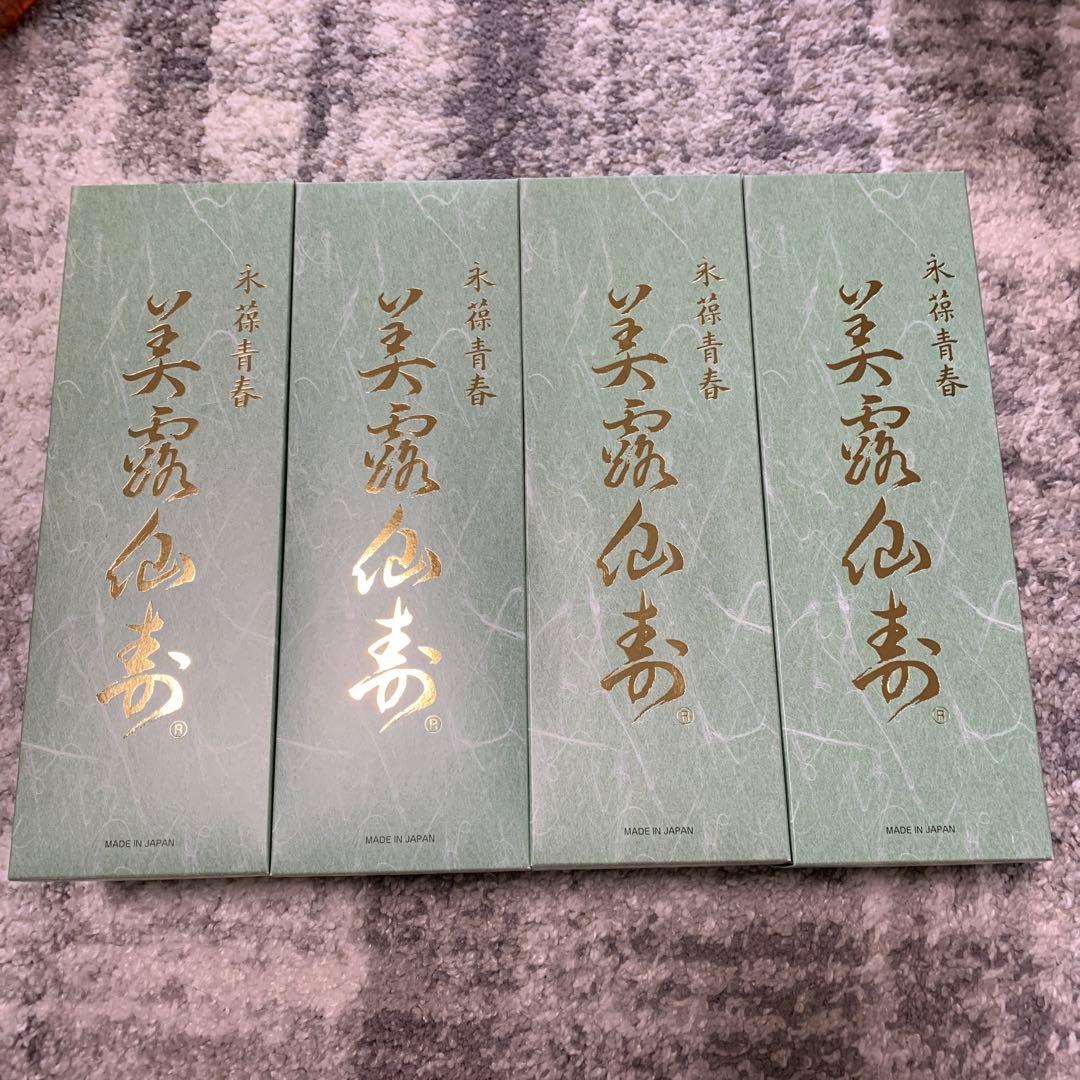 永葆青春
美露仙寿
®
MADE IN JAPAN
永葆青春
美露仙寿
®
MADE IN JAPAN
永葆青春
美露仙寿
®
MADE IN JAPAN
永葆青春
美露仙寿
®
MADE IN JAPAN